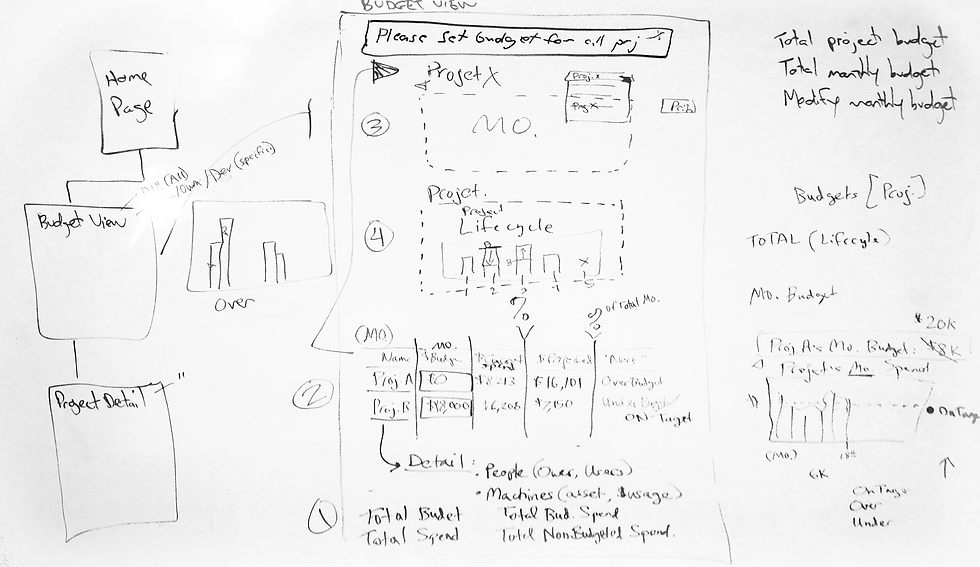 BUDGET VIEW
Please set budget for all proj
Home
Page
(All)
/Own/Dev (specific)
Budget View
Over
Project Detail
Projet X
Proj. X
Proj X
Proj
③
MO.
Projet.
④
Project
Lifecycle
1 2 3 4 5
%
% of Total Mo.
(MO)
Name
MO.
$ Budge
$ Current
spend
$ Projected
"Alert"
②
Proj. A
$0
$8,213
$16,101
Over Budget
Proj. B
$18,000
$6,208
Under
ON-Target
Detail:
• People (Over, Users)
• Machines (asset, $usage)
①
Total Budet
Total Bud. Spend
Total Spend
Total NonBudgeted Spend.
Total project budget
Total monthly budget
Modify monthly budget
Budgets [Proj.]
TOTAL (Lifecyle)
Mo. Budget
$20k
Proj A's Mo. Budget: $8K
Mo Spend
(MO.)
18th
6K
On Targ
On Targ
Over
Under